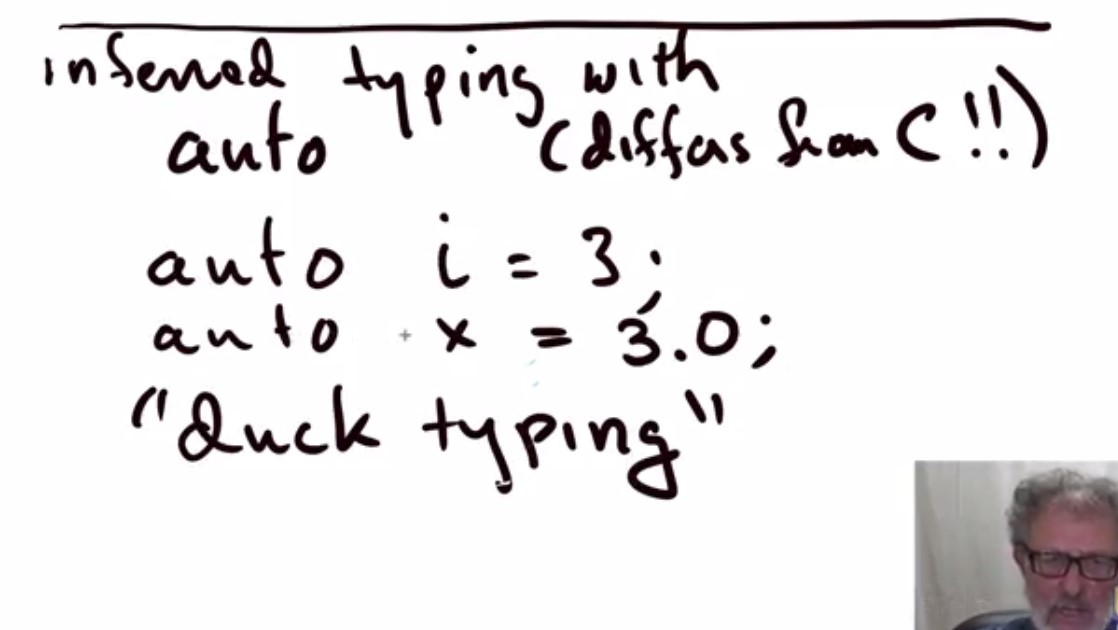 inferred typing with
auto (differs from C !!)
auto i = 3;
auto x = 3.0;
"duck typing"